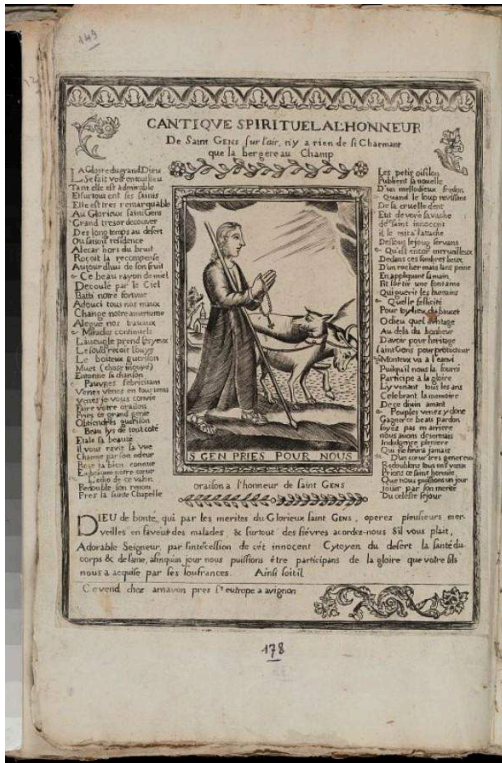 149
CANTIQVE SPIRITUEL A L'HONNEUR
De Saint GENS sur l'air, n'y a rien de si Charmant
que la bergere au Champ
LA Gloire du grand Dieu
Tant elle est admirable
Et surtout en ses saints
Elle est tres remarquable
Au Glorieux saint Gens
Grand tresor decouver
Des long temps au desert
Ou faisoit residence
Alecar hors du bruit
Reçoit la recompense
Aujourdhui de son fruit
Ce beau rayon de miel
Decoule par le Ciel
Batit notre fortune
Adouci tous nos maux
Change notre amertume
Alegue nos travaux
Miracles continuels
Laveugle prend les yeux
Le sourd reçoit l'ouye
Le boiteux guerison
Muet
Entonne sa chanson
Pauvres febricitans
Venez venez en tous tems
Venez je vous convie
Faire votre oraison
Obtiendres guerison
Beau lys de tout coté
Etale sa beauté
Il vous ravit la vue
Charme par son odeur
Embaume notre coeur
L'echo de ce valon
Redouble son renom
Prez la sainte Chapelle
Les petit oisillon
Publient sa nouvelle
D'un melodieux fredon
Quand le loup ravissant
De sa cruelle dent
Eut devoré sa vache
de saint innocent
il le mit a l'attache
Dessous le joug servans
Qu'est encor merveilleux
Dedans ces sombres lieux
D'un rocher mans lant peine
En appliquant sa main
Fit sortir une fontaine
Qui guerit les humains
Quelle felicité
Pour toy lieu du baucet
O dieu quel avantage
Au dela du bonheur
D'avoir pour heritage
Saint Gens pour protecteur
Monteux va a l'envi
Puisqu'il nous la fourni
Participe à la gloire
L'y venant tous les ans
Celebrant la memoire
De ce divin amant
Peuples venez y donc
Gagner ce beau pardon
soyez pas en arriere
nous avons desormais
Indulgence pleniere
Qui ne finira jamais
D'un coeur tres genereux
Redoublons tous nos voeux
Prions ce saint hermite
Que nous puissions un jour
jouir par son merite
Du celeste sejour
S GEN PRIES POUR NOUS
oraison a l'honneur de saint GENS
DIEU de bonte, qui par les merites du Glorieux saint GENS, operez plusieurs mer-
veilles en faveur des malades, & surtout des fiévres acordez-nous S'il vous plait,
Adorable Seigneur, par l'intecession de cét innocent Cytoyen du desert la santé du
corps & de lame, afinqu'un jour nous puissions être participans de la gloire que votre fils
nous a acquise par ses soufrances. Ainsi soitil
Ce vend chez arnavon pres st eutrope a avignon
178